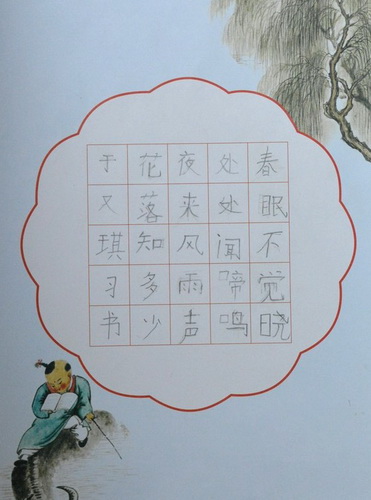 春眠不觉晓
处处闻啼鸣
夜来风雨声
花落知多少
于又琪习书